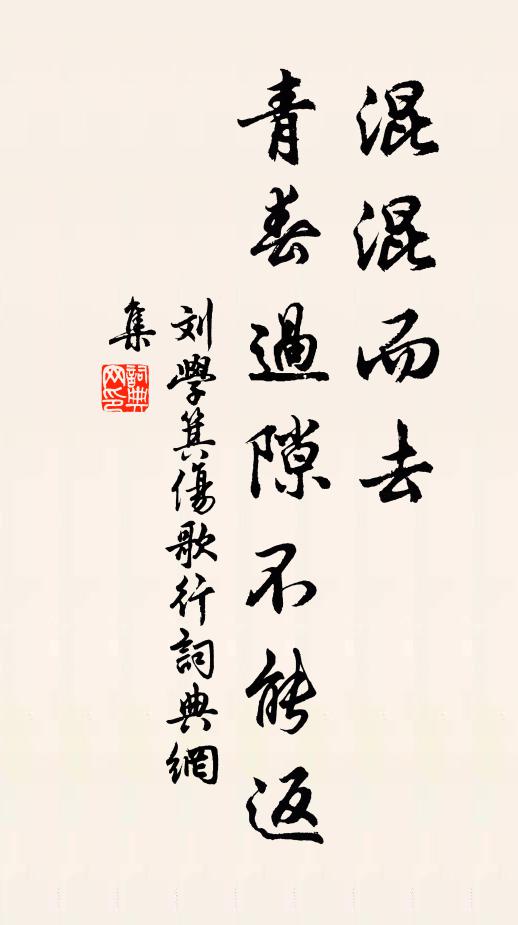 混混而去
青春過隙不能返
刘學箕傷歌行詞典網
集
詞典網印